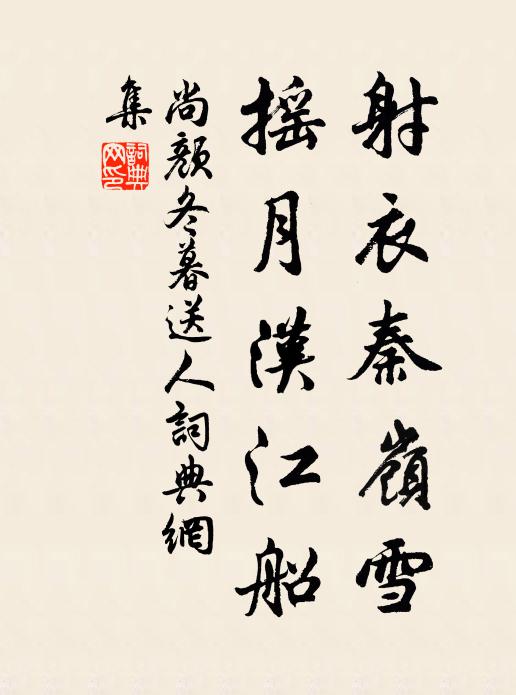 射衣秦嶺雪
搖月漢江船
尚顏冬暮送人詞典網
集
詞典
网印